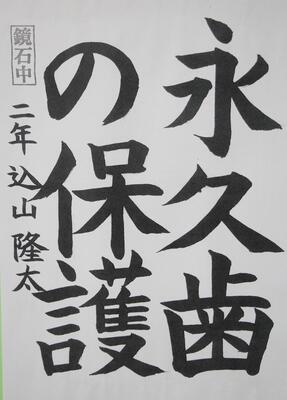 永久歯
の保護
鏡石中
二年 込山隆太